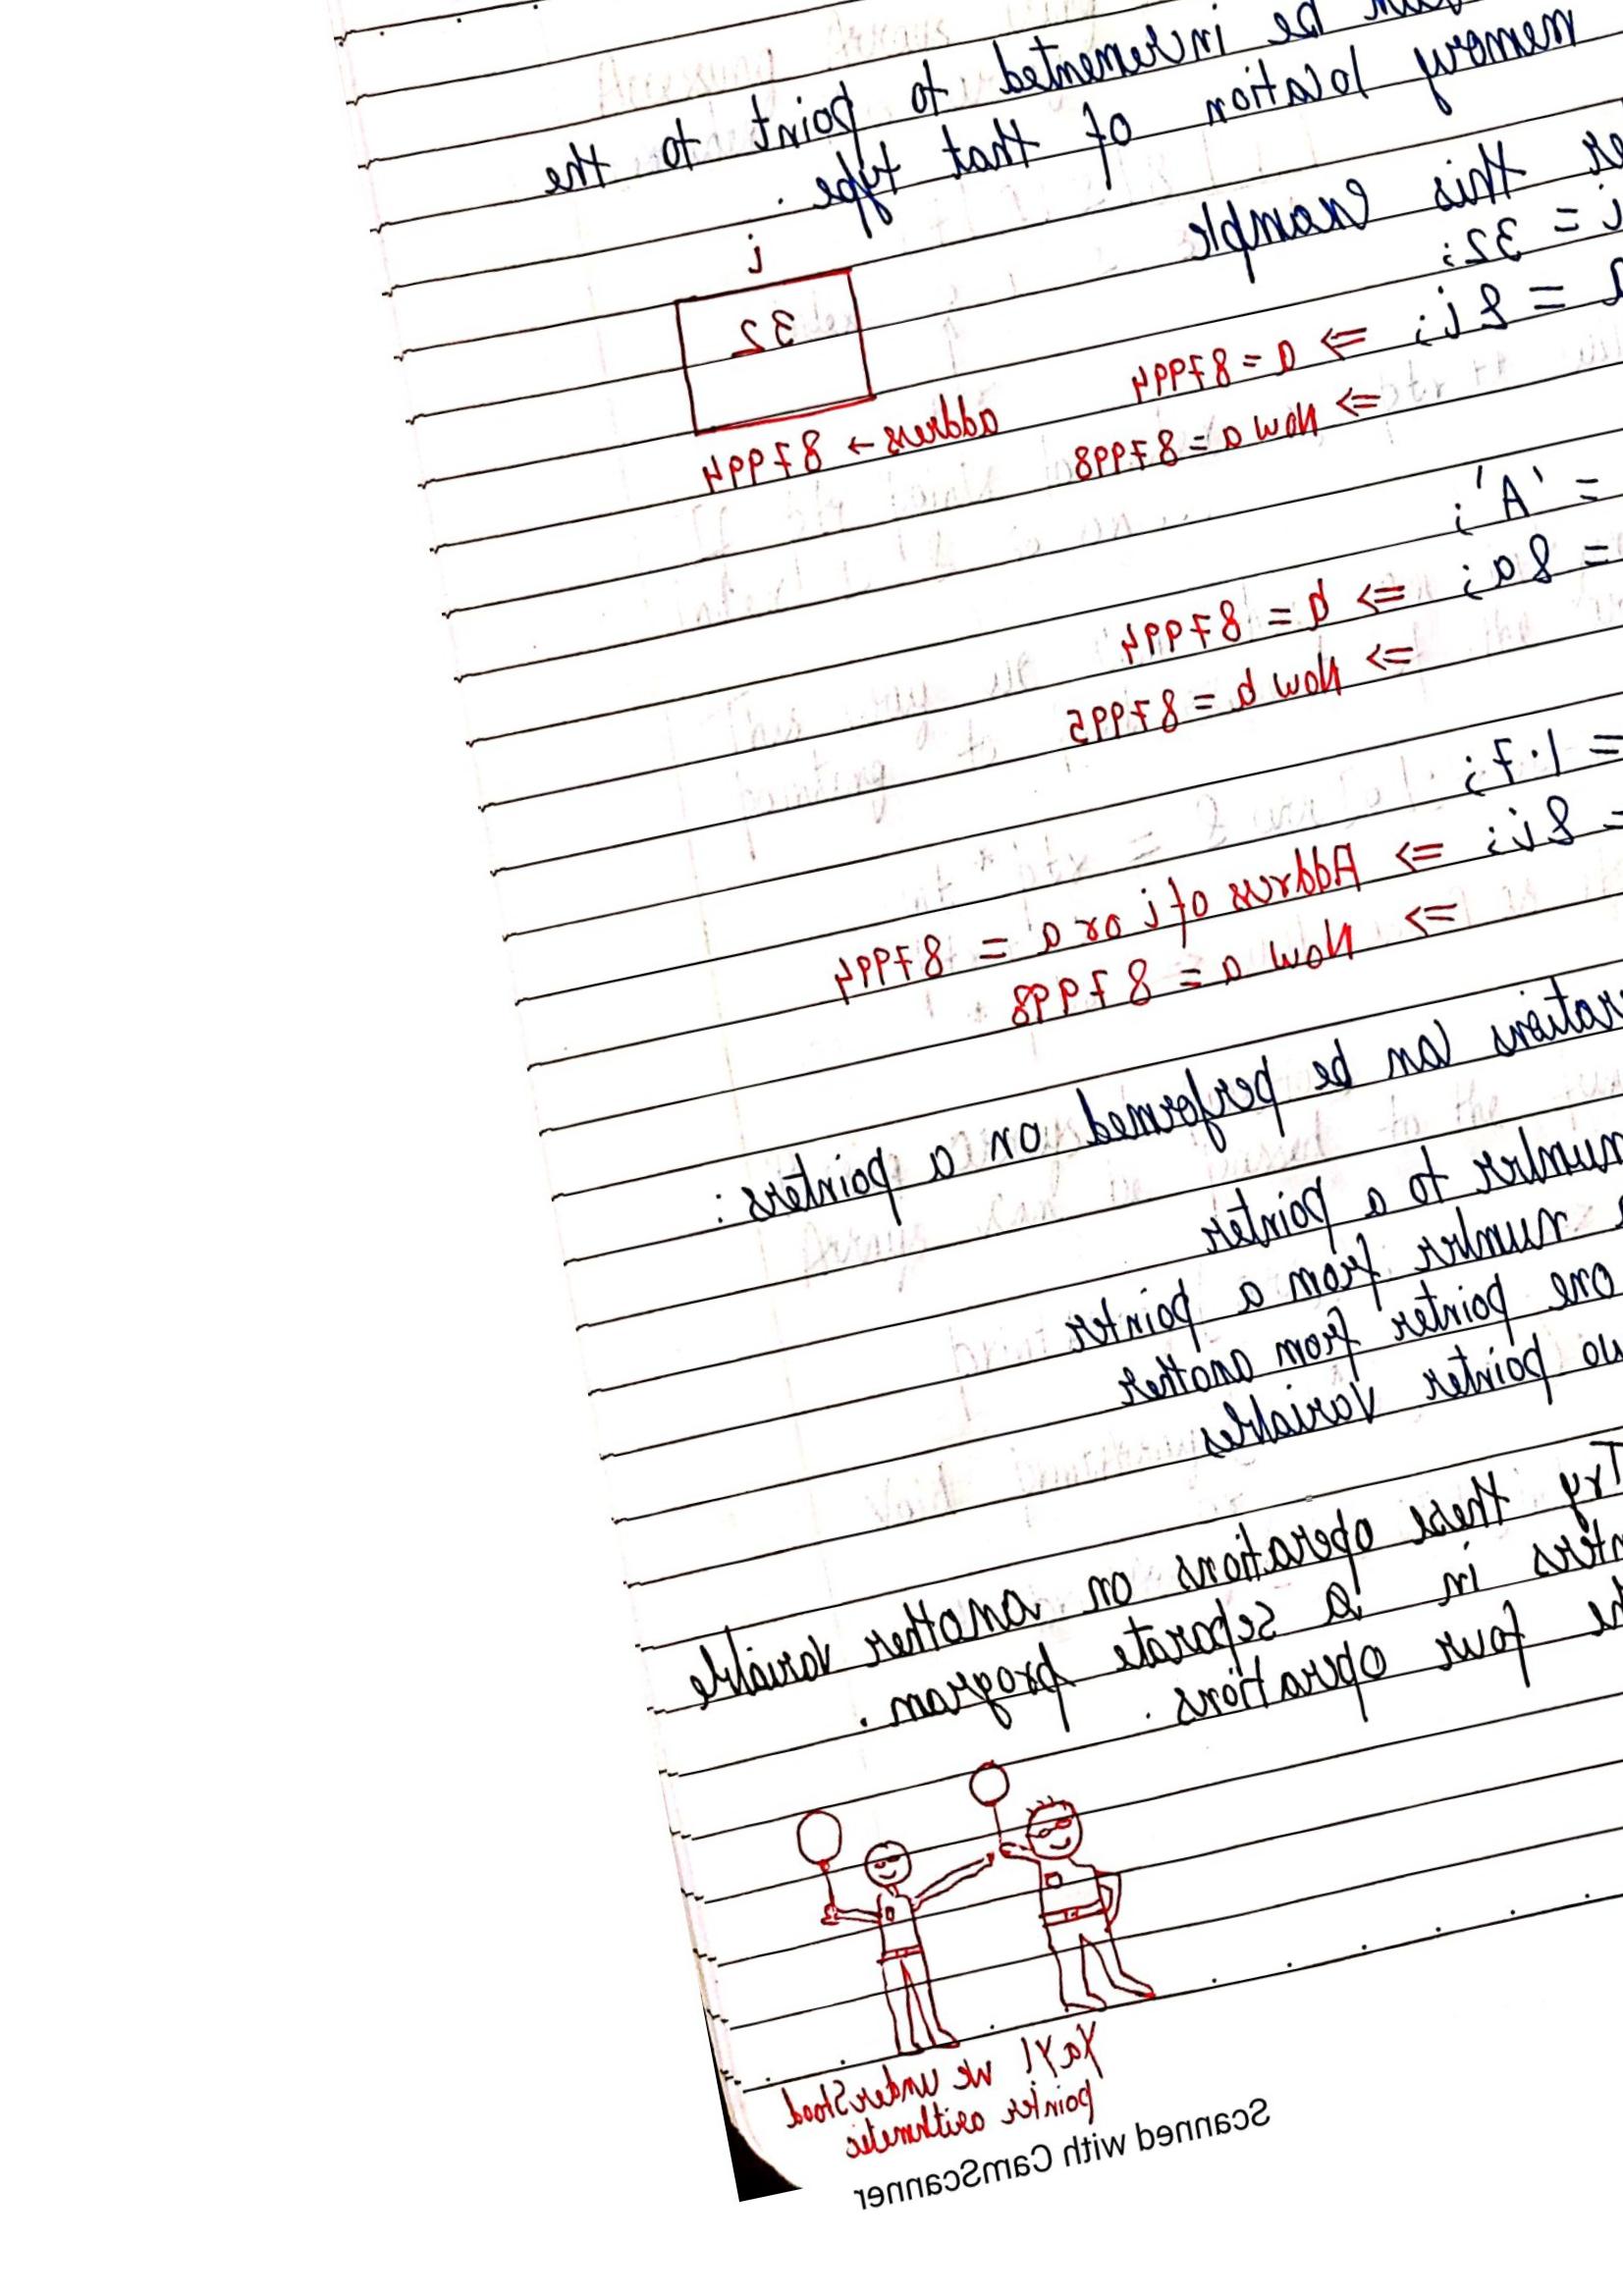 be incremented to point to the
memory location of that type.
this Example
i = 32;
i
32
address → 87994
= &i; => a = 87994
=> Now a = 87998
= 'A';
= &a; => b = 87994
=> Now b = 87995
= 1.7;
= &i; => Address of i or a = 87994
=> Now a = 87998
can be performed on a pointers:
number to a pointer
number from a pointer
one pointer from another
pointer variables
Try these operations on another variable
in a separate program.
four operations.
Yay! we understood
pointer arithmetic
Scanned with CamScanner